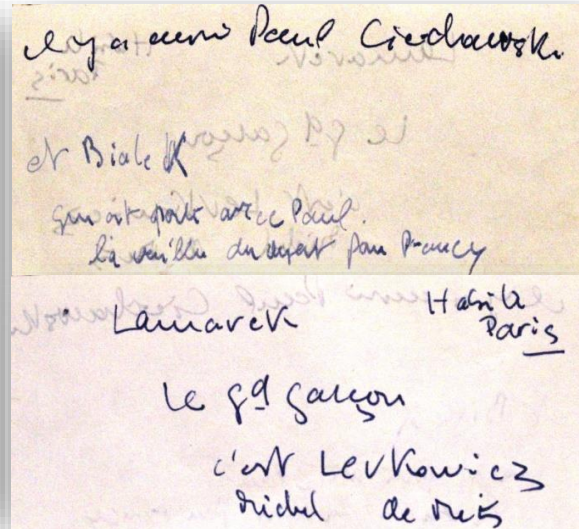 il y a aussi Paul Ciechawski
et Bialek
qui est parti avec Paul.
la veille du départ pour Drancy
Lamarek Habite
Paris
Le gd garçon
c'est Levkowicz
Michel de Metz